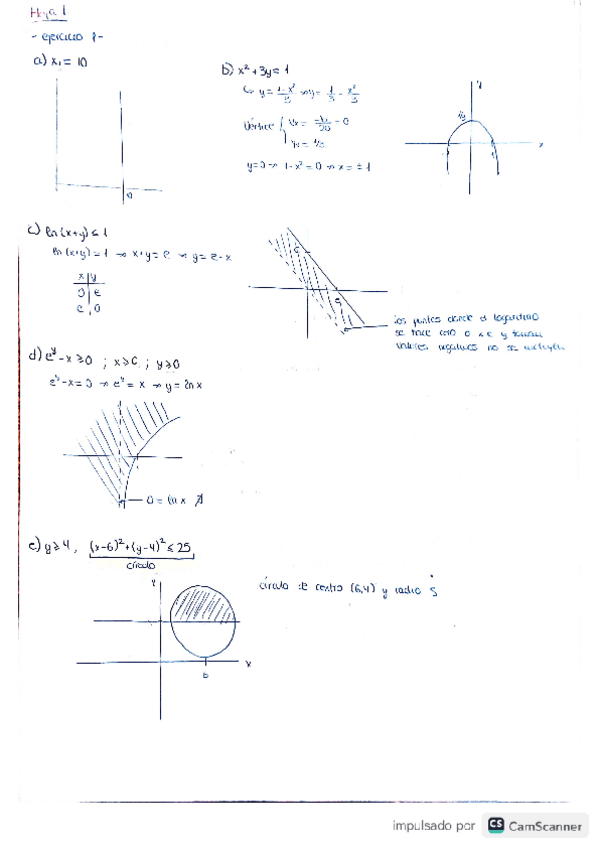 Hoja 1
- ejercicio 1-
a) x₁ = 10
b) x² + 3y = 1
y = 1-x²/3 → y = 1/3 - x²/3
Vértice
= 0
y=0 → 1-x² = 0 → x = ± 1
y
x
c) ln(x+y) ≤ 1
ln(x+y) = 1 → x+y = e → y = e-x
x | y
0 | e
e | 0
los puntos donde el logaritmo
se hace cero o < e y toman
valores negativos no se
d) e^y - x ≥ 0 ; x ≥ 0 ; y ≥ 0
e^y - x = 0 → e^y = x → y = ln x
0 = ln x
e) y ≥ 4, (x-6)² + (y-4)² ≤ 25
círculo
y
círculo de centro (6,4) y radio 5
x
6
impulsado por CS CamScanner